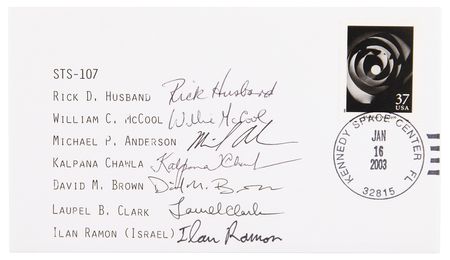 STS-107
RICK D. HUSBAND Rick Husband
WILLIAM C. MCCOOL Willie McCool
MICHAEL P. ANDERSON
KALPANA CHAWLA Kalpana Chawla
DAVID M. BROWN David M. Brown
LAUPEL B. CLARK Laurel Clark
ILAN RAMON (ISRAEL) Ilan Ramon
37
USA
KENNEDY SPACE CENTER FL
JAN
16
2003
32815